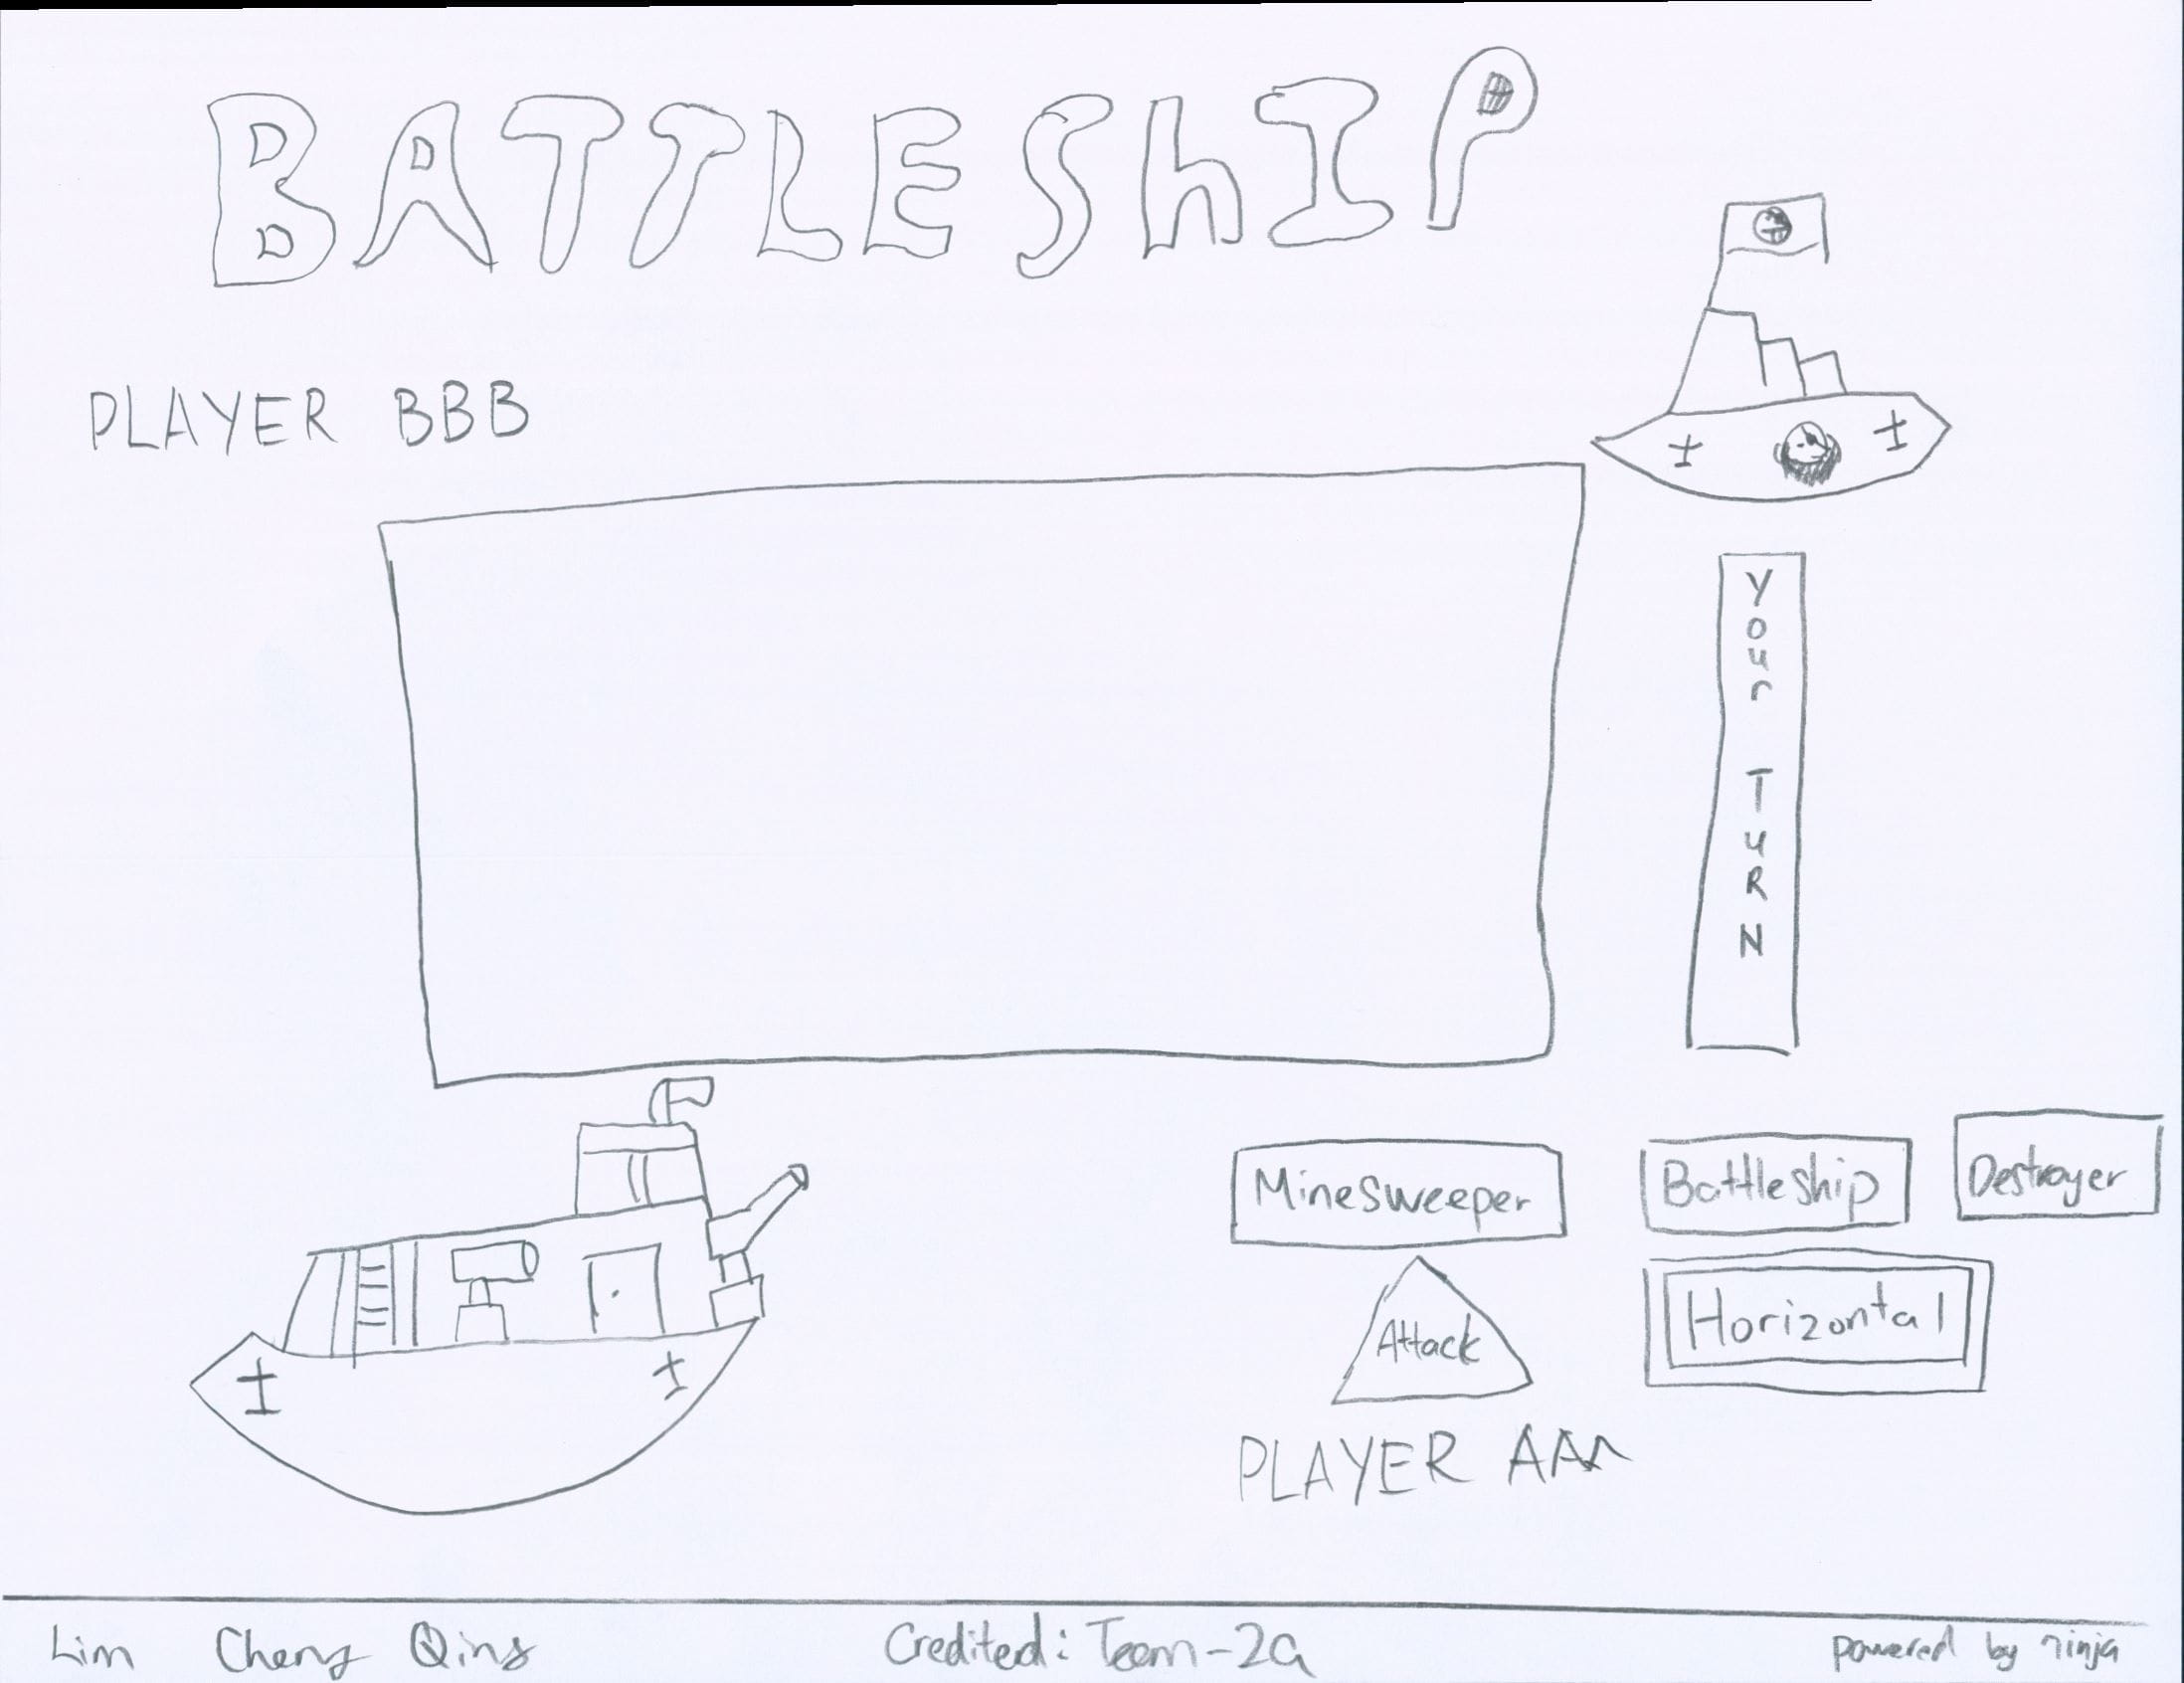 BATTLEShIP
PLAYER BBB
Your TuRN
Minesweeper
Battleship
Destroyer
Attack
Horizontal
PLAYER AAA
Lim Cheng Qing
Credited: Team-2a
powered by ninja